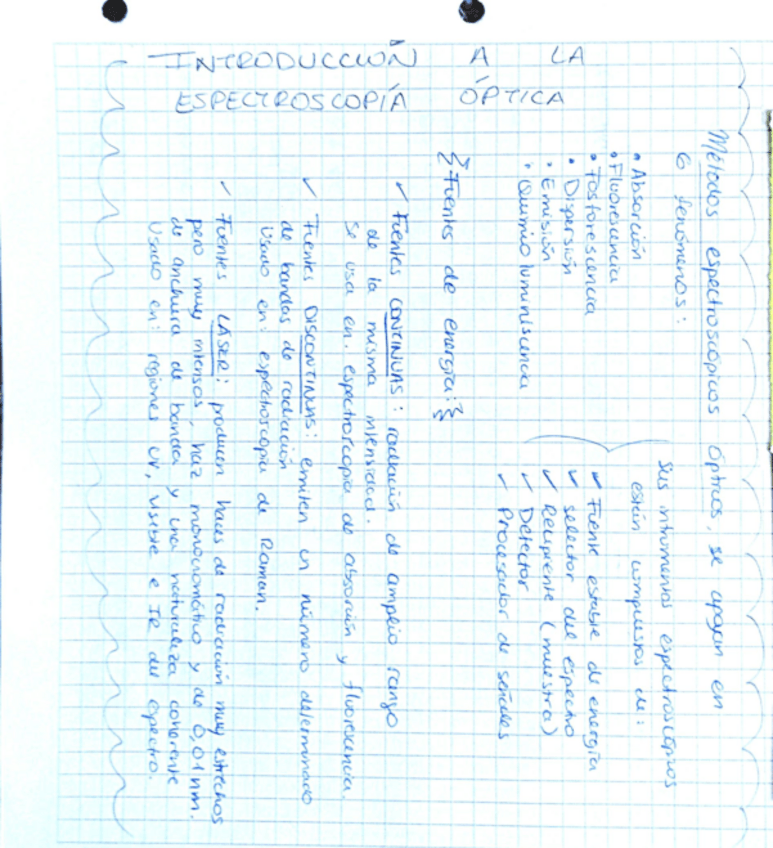 INTRODUCCIÓN A LA
ESPECTROSCOPÍA ÓPTICA
Métodos espectroscópicos ópticos, se apoyan en
6 fenómenos:
• Absorción
• Fluorescencia
• Fosforescencia
• Dispersión
• Emisión
• Quimioluminiscencia
Sus intrumentos espectroscópicos
están compuestos de:
✓ Fuente estable de energía
✓ selector del espectro
✓ Recipiente (muestra)
✓ Detector
✓ Procesador de señales
Fuentes de energía:
✓ Fuentes CONTINUAS: radiación de amplio rango
de la misma intensidad.
Se usa en: espectroscopía de absorción y fluorescencia.
✓ Fuentes DISCONTINUAS: emiten un número determinado
de bandas de radiación
Usado en: espectroscopía de Raman.
✓ Fuentes LÁSER: producen haces de radiación muy estrechos
pero muy intensos, haz monocromático y de 0,01 nm.
de anchura de banda y una naturaleza coherente
Usado en: regiones UV, visible e IR del espectro.